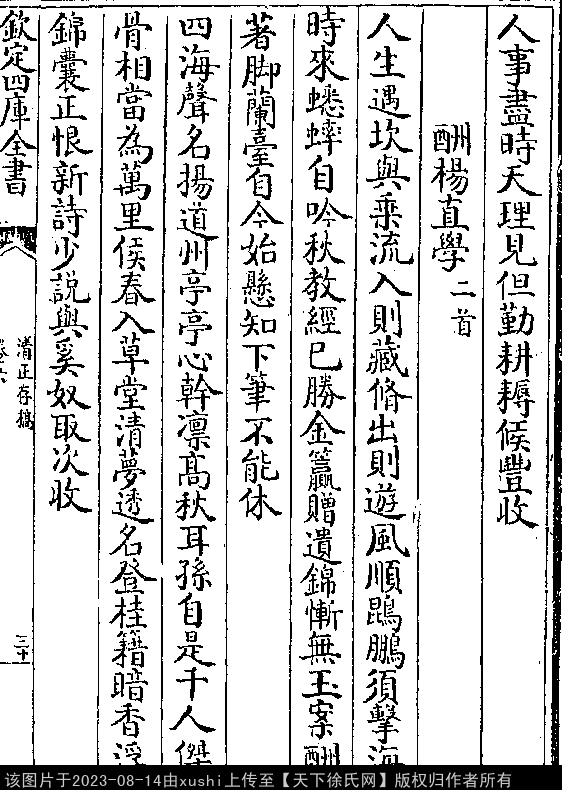 人事盡時天理見但勤耕耨候豐收
酬楊直學二首
人生遇坎與乗流入則藏脩出則遊風順鵾鵬須擊海
時來蟋蟀自吟秋教經已勝金籯贈遺錦慚無玉案酬
著脚蘭臺自今始懸知下筆不能休
四海聲名揚道州亭亭心幹凛髙秋耳孫自是千人傑
骨相當為萬里侯春入草堂清夢透名登桂籍暗香浮
錦囊正恨新詩少説與奚奴取次收
欽定四庫全書
清正存稿
卷六
三十
该图片于2023-08-14由xushi上传至【天下徐氏网】版权归作者所有